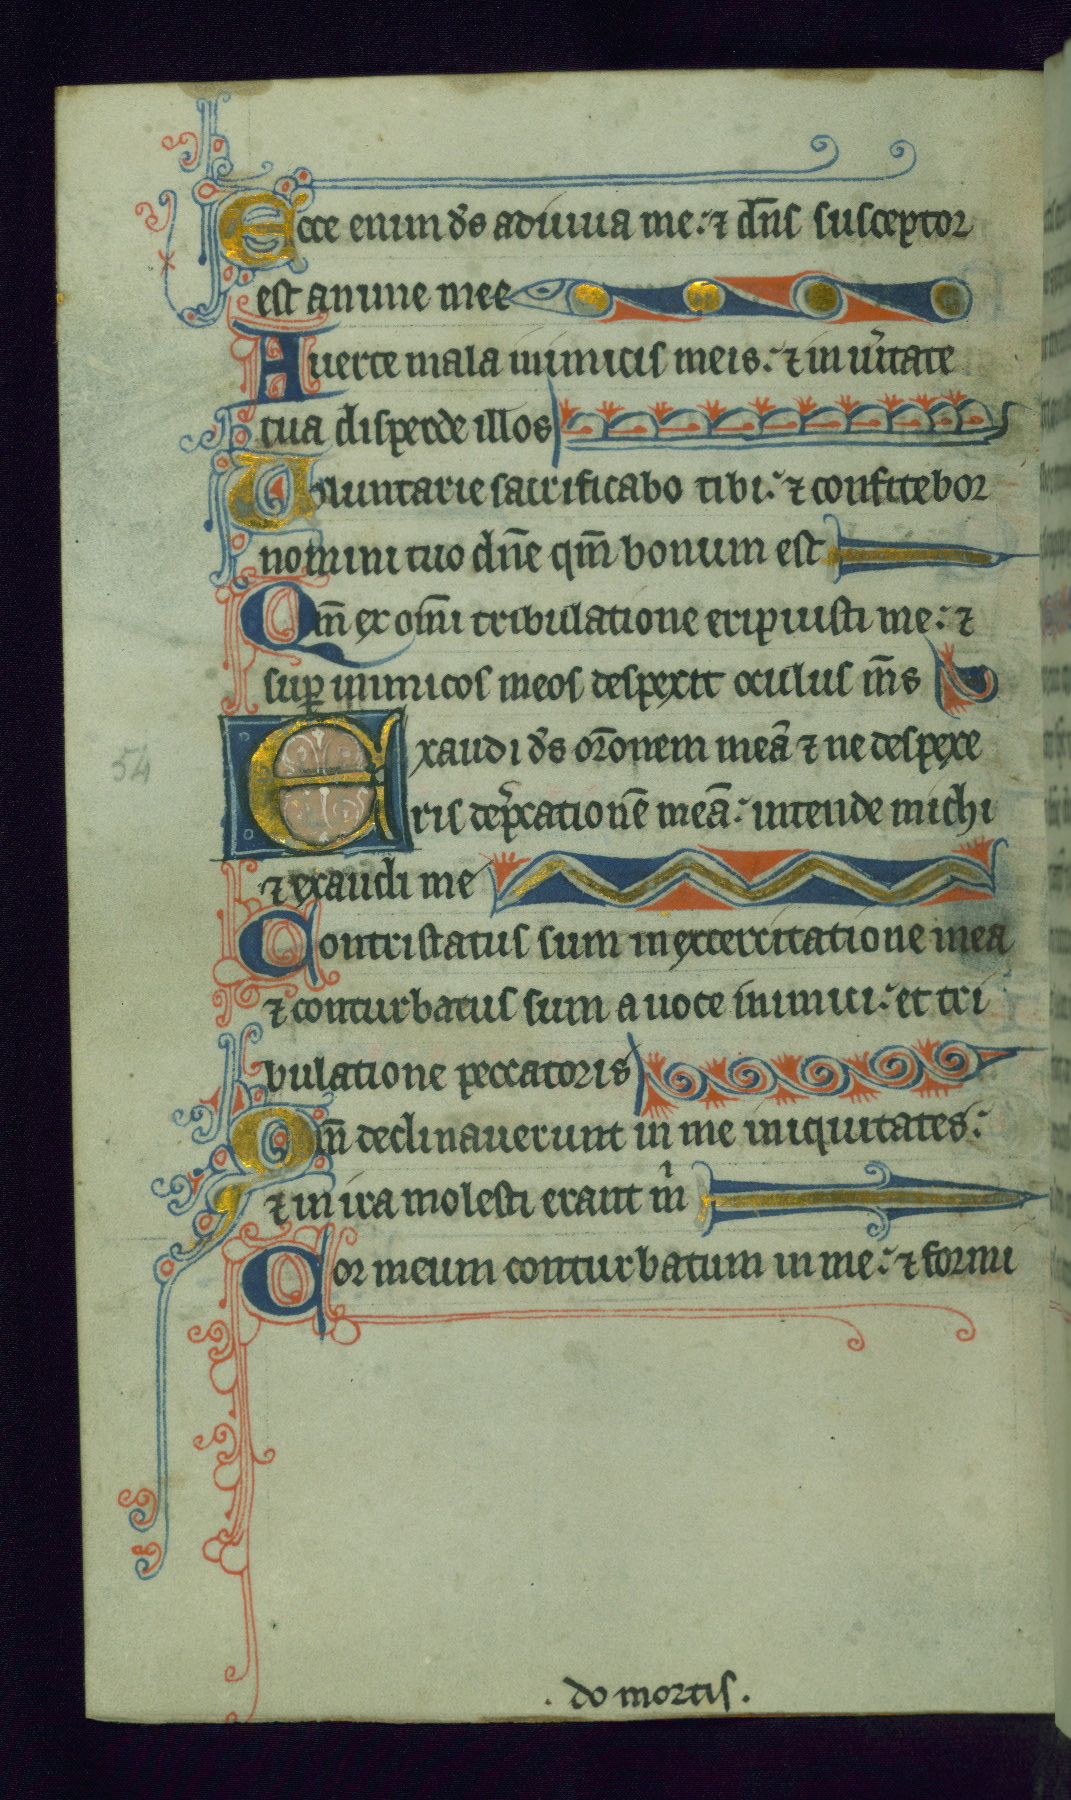 Ecce enim ds̄ adiuua me: ⁊ dn̄s susceptor
est anime mee
Auerte mala inimicis meis: ⁊ in ūitate
tua disperde illos
Uoluntarie sacrificabo tibi: ⁊ confitebor
nomini tuo dn̄e qm̄ bonum est
Qm̄ ex om̄i tribulatione eripuisti me: ⁊
suꝑ inimicos meos despexit oculus m̄s
Exaudi ds̄ or̄onem meā ⁊ ne despexe
ris dep̄cationē meā: intende michi
⁊ exaudi me
Contristatus sum in excercitatione mea
⁊ conturbatus sum a uoce inimici: et tri
bulatione peccatoris
Qm̄ declinauerunt in me iniquitates:
⁊ in ira molesti erant m̄
Cor meum conturbatum in me: ⁊ formi
54
. do mortis.